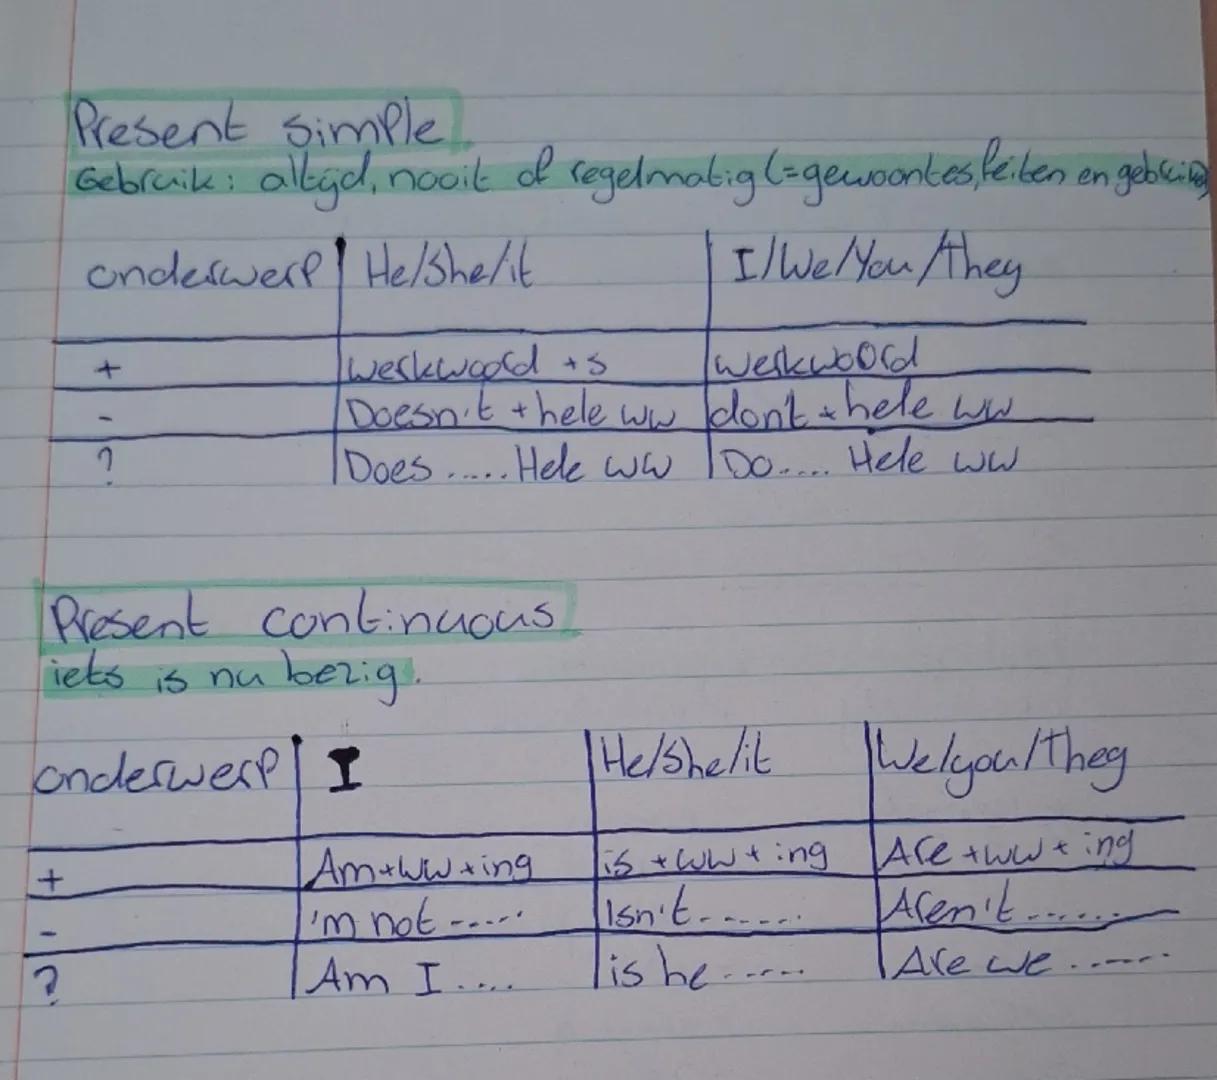 Present simple
Gebruik: altijd, nooit of regelmatig (=gewoontes, feiten en
onderwerp He/She/it I/We/You/They
+ werkwoord +s werkwoord
- Doesn't + hele ww don't + hele ww
? Does ..... Hele ww Do..... Hele ww
Present continuous
iets is nu bezig.
onderwerp I He/She/it We/you/They
+ Am+ww+ing is +ww+ing Are +ww+ing
- 'm not ----- Isn't....... Aren't.......
? Am I.... is he ----- Are we ------